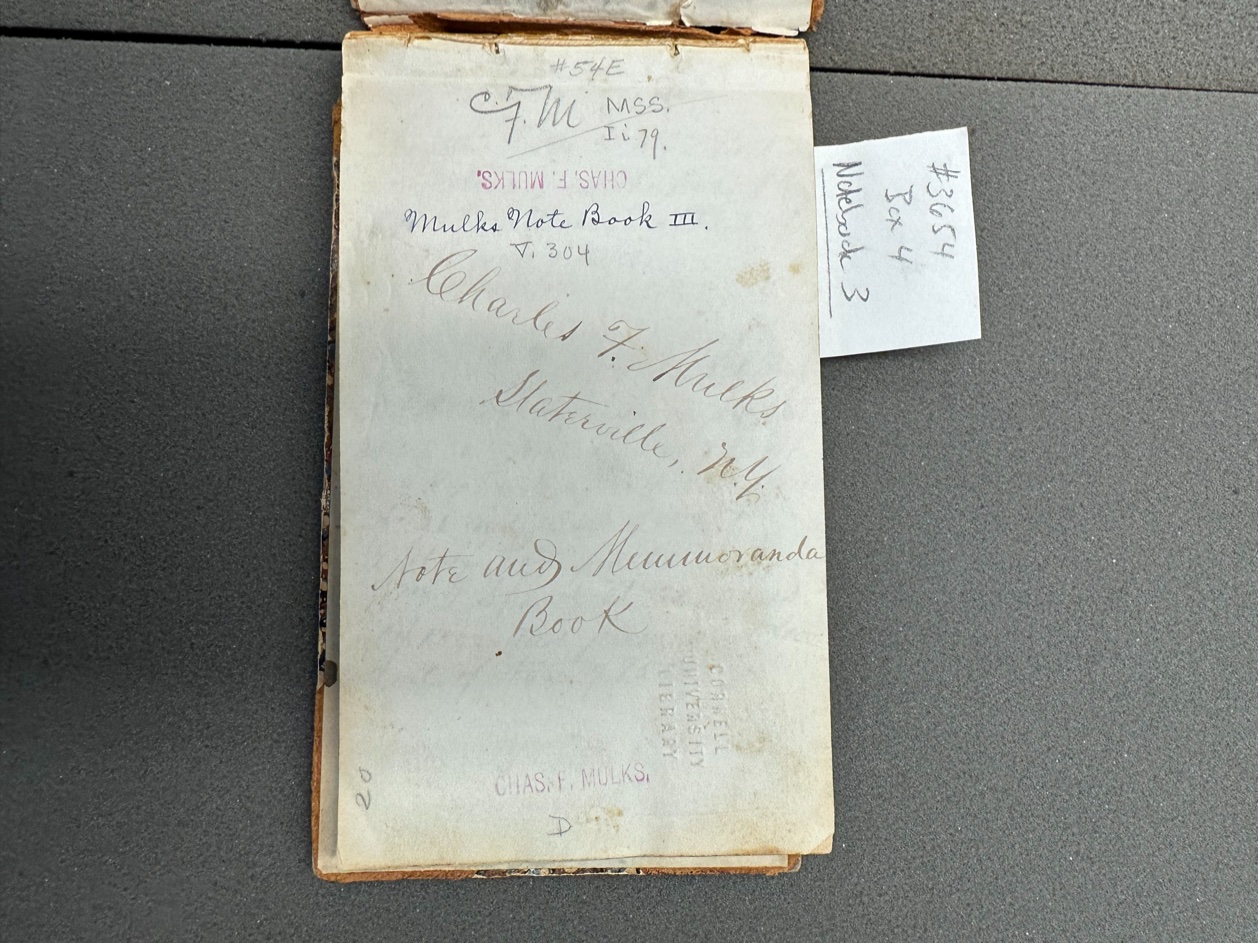 #54E
C.F.M MSS.
Ii 79.
CHAS. F. MULKS.
Mulks Note Book III.
V. 304
Charles F. Mulks
Slaterville, N.Y.
Note and Memmoranda
Book
CORNELL
UNIVERSITY
LIBRARY
CHAS. F. MULKS.
20
D
#3654
Box 4
Notebook 3